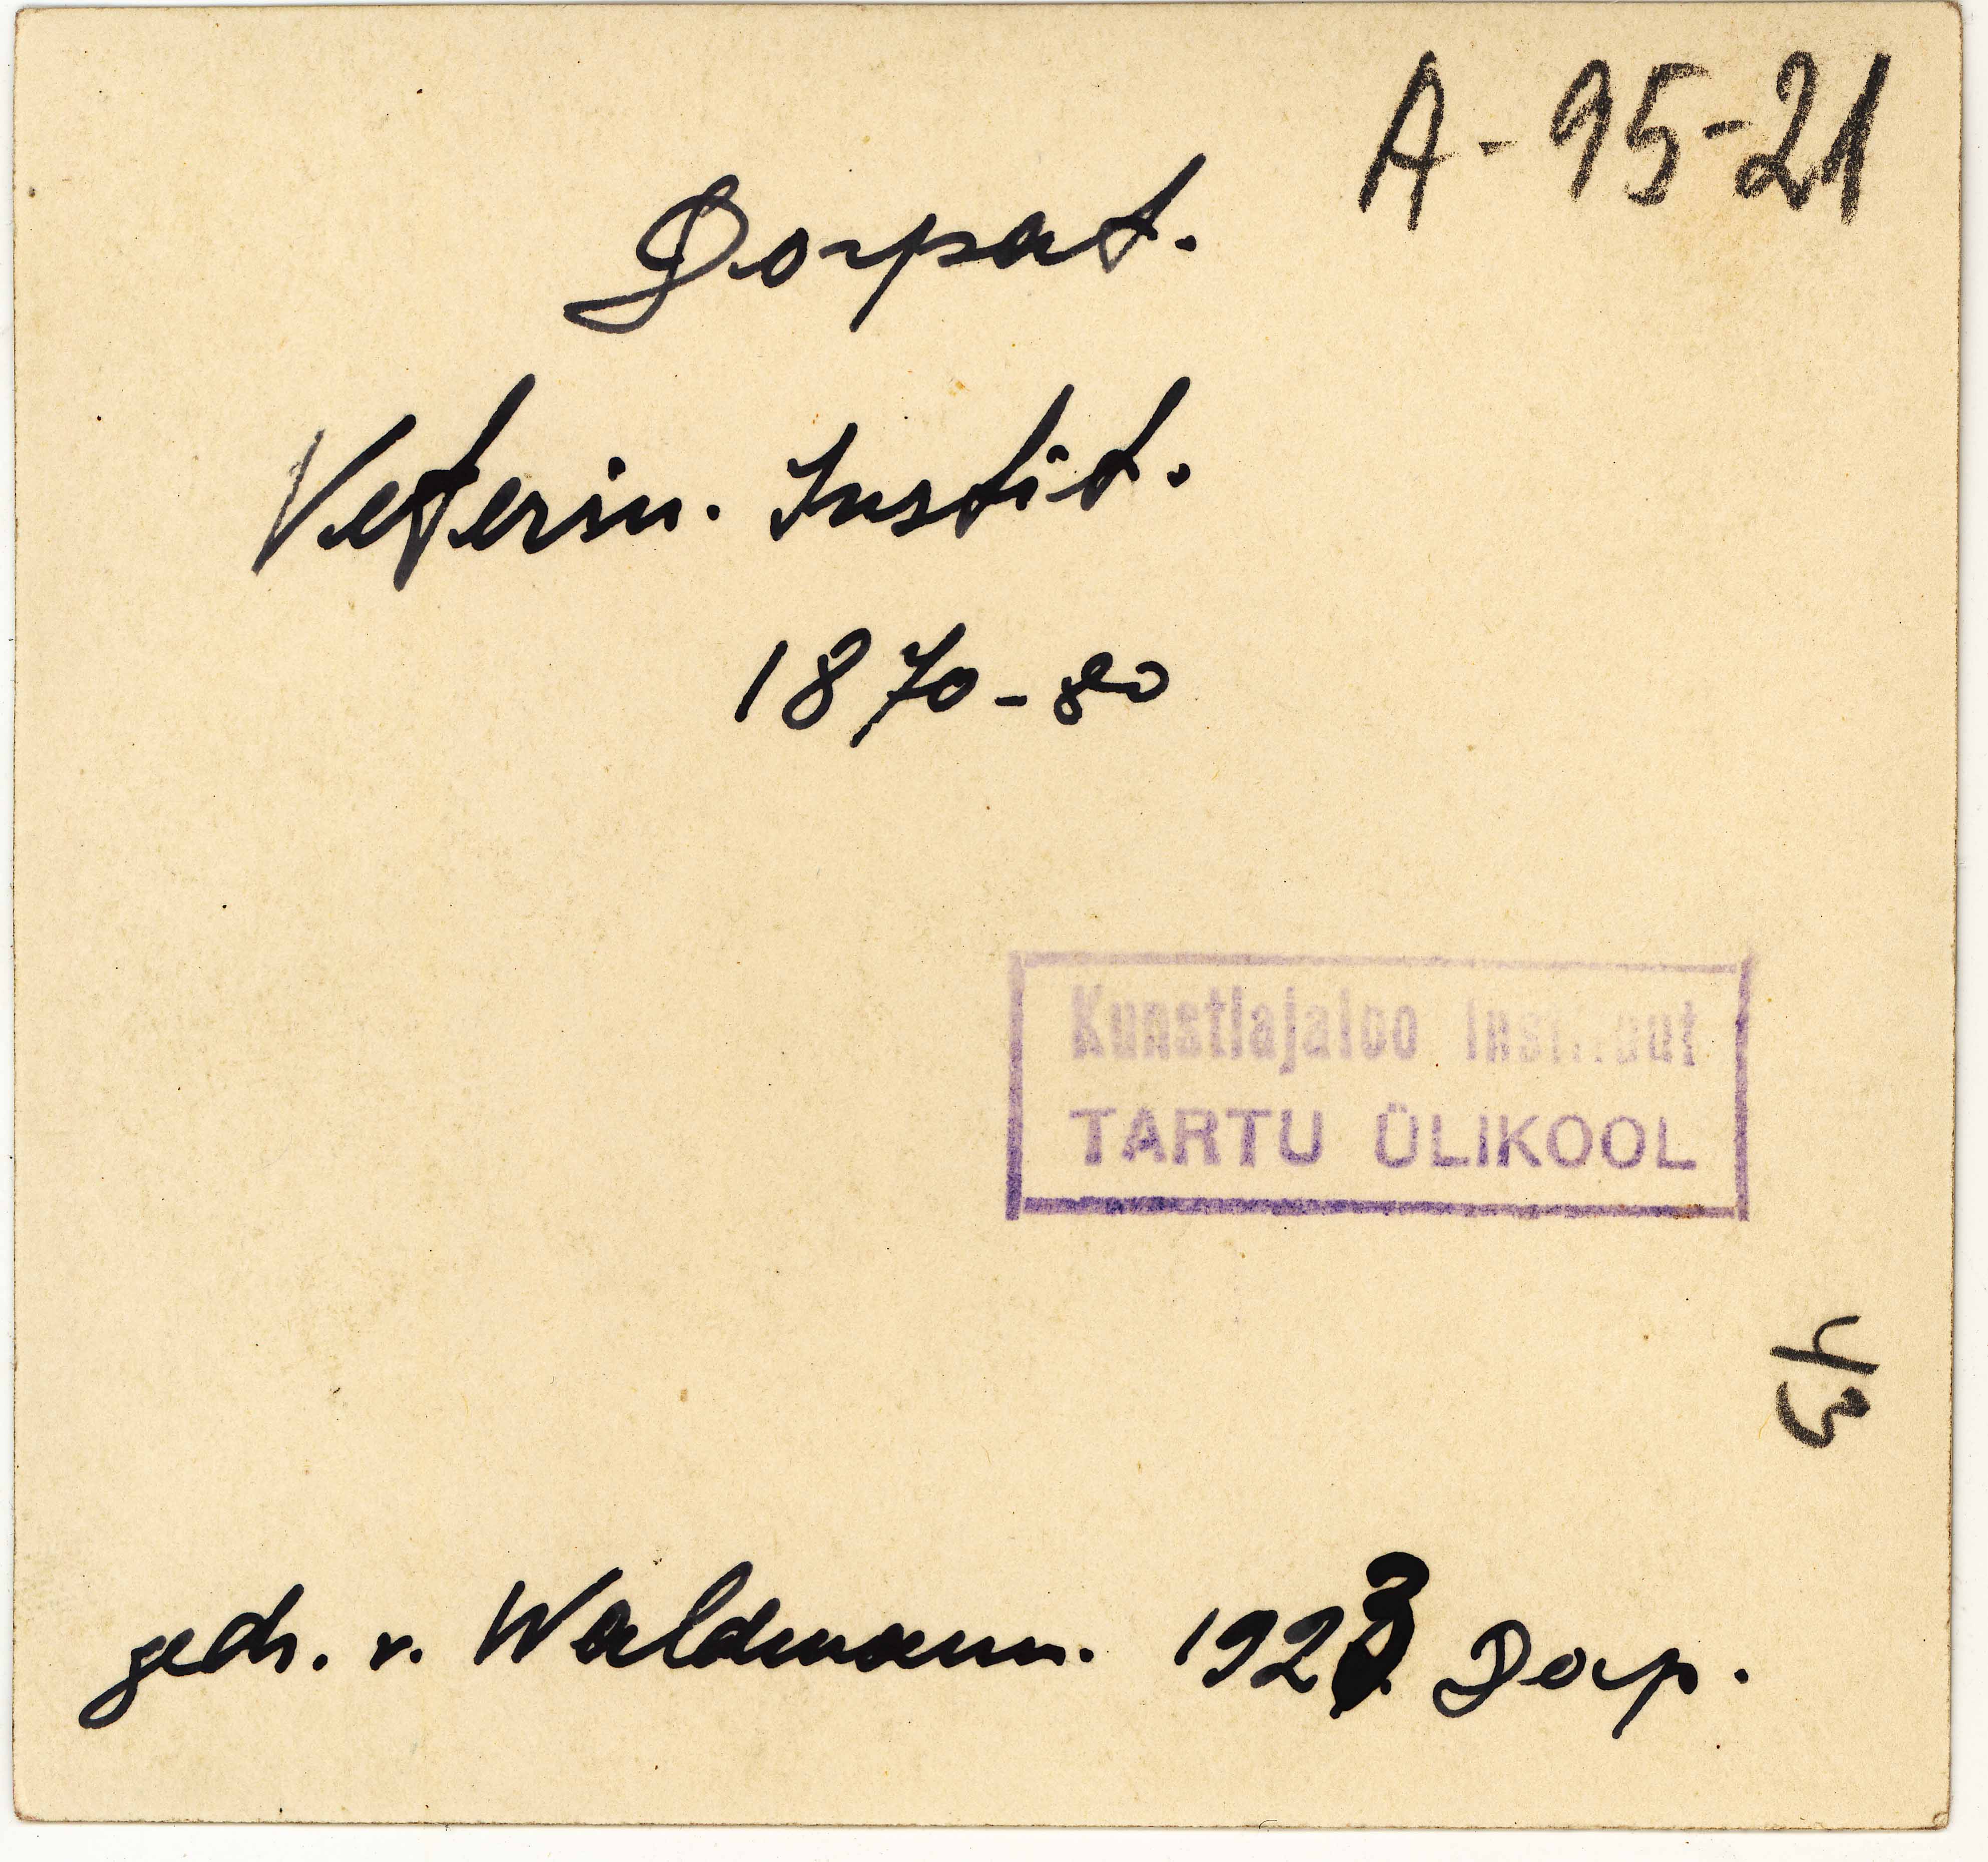 A-95-21
Dorpat.
Veterin. Instit.
1870-80
Kunstiajaloo Instituut
TARTU ÜLIKOOL
43
v. Waldmann. 1923 Dorp.